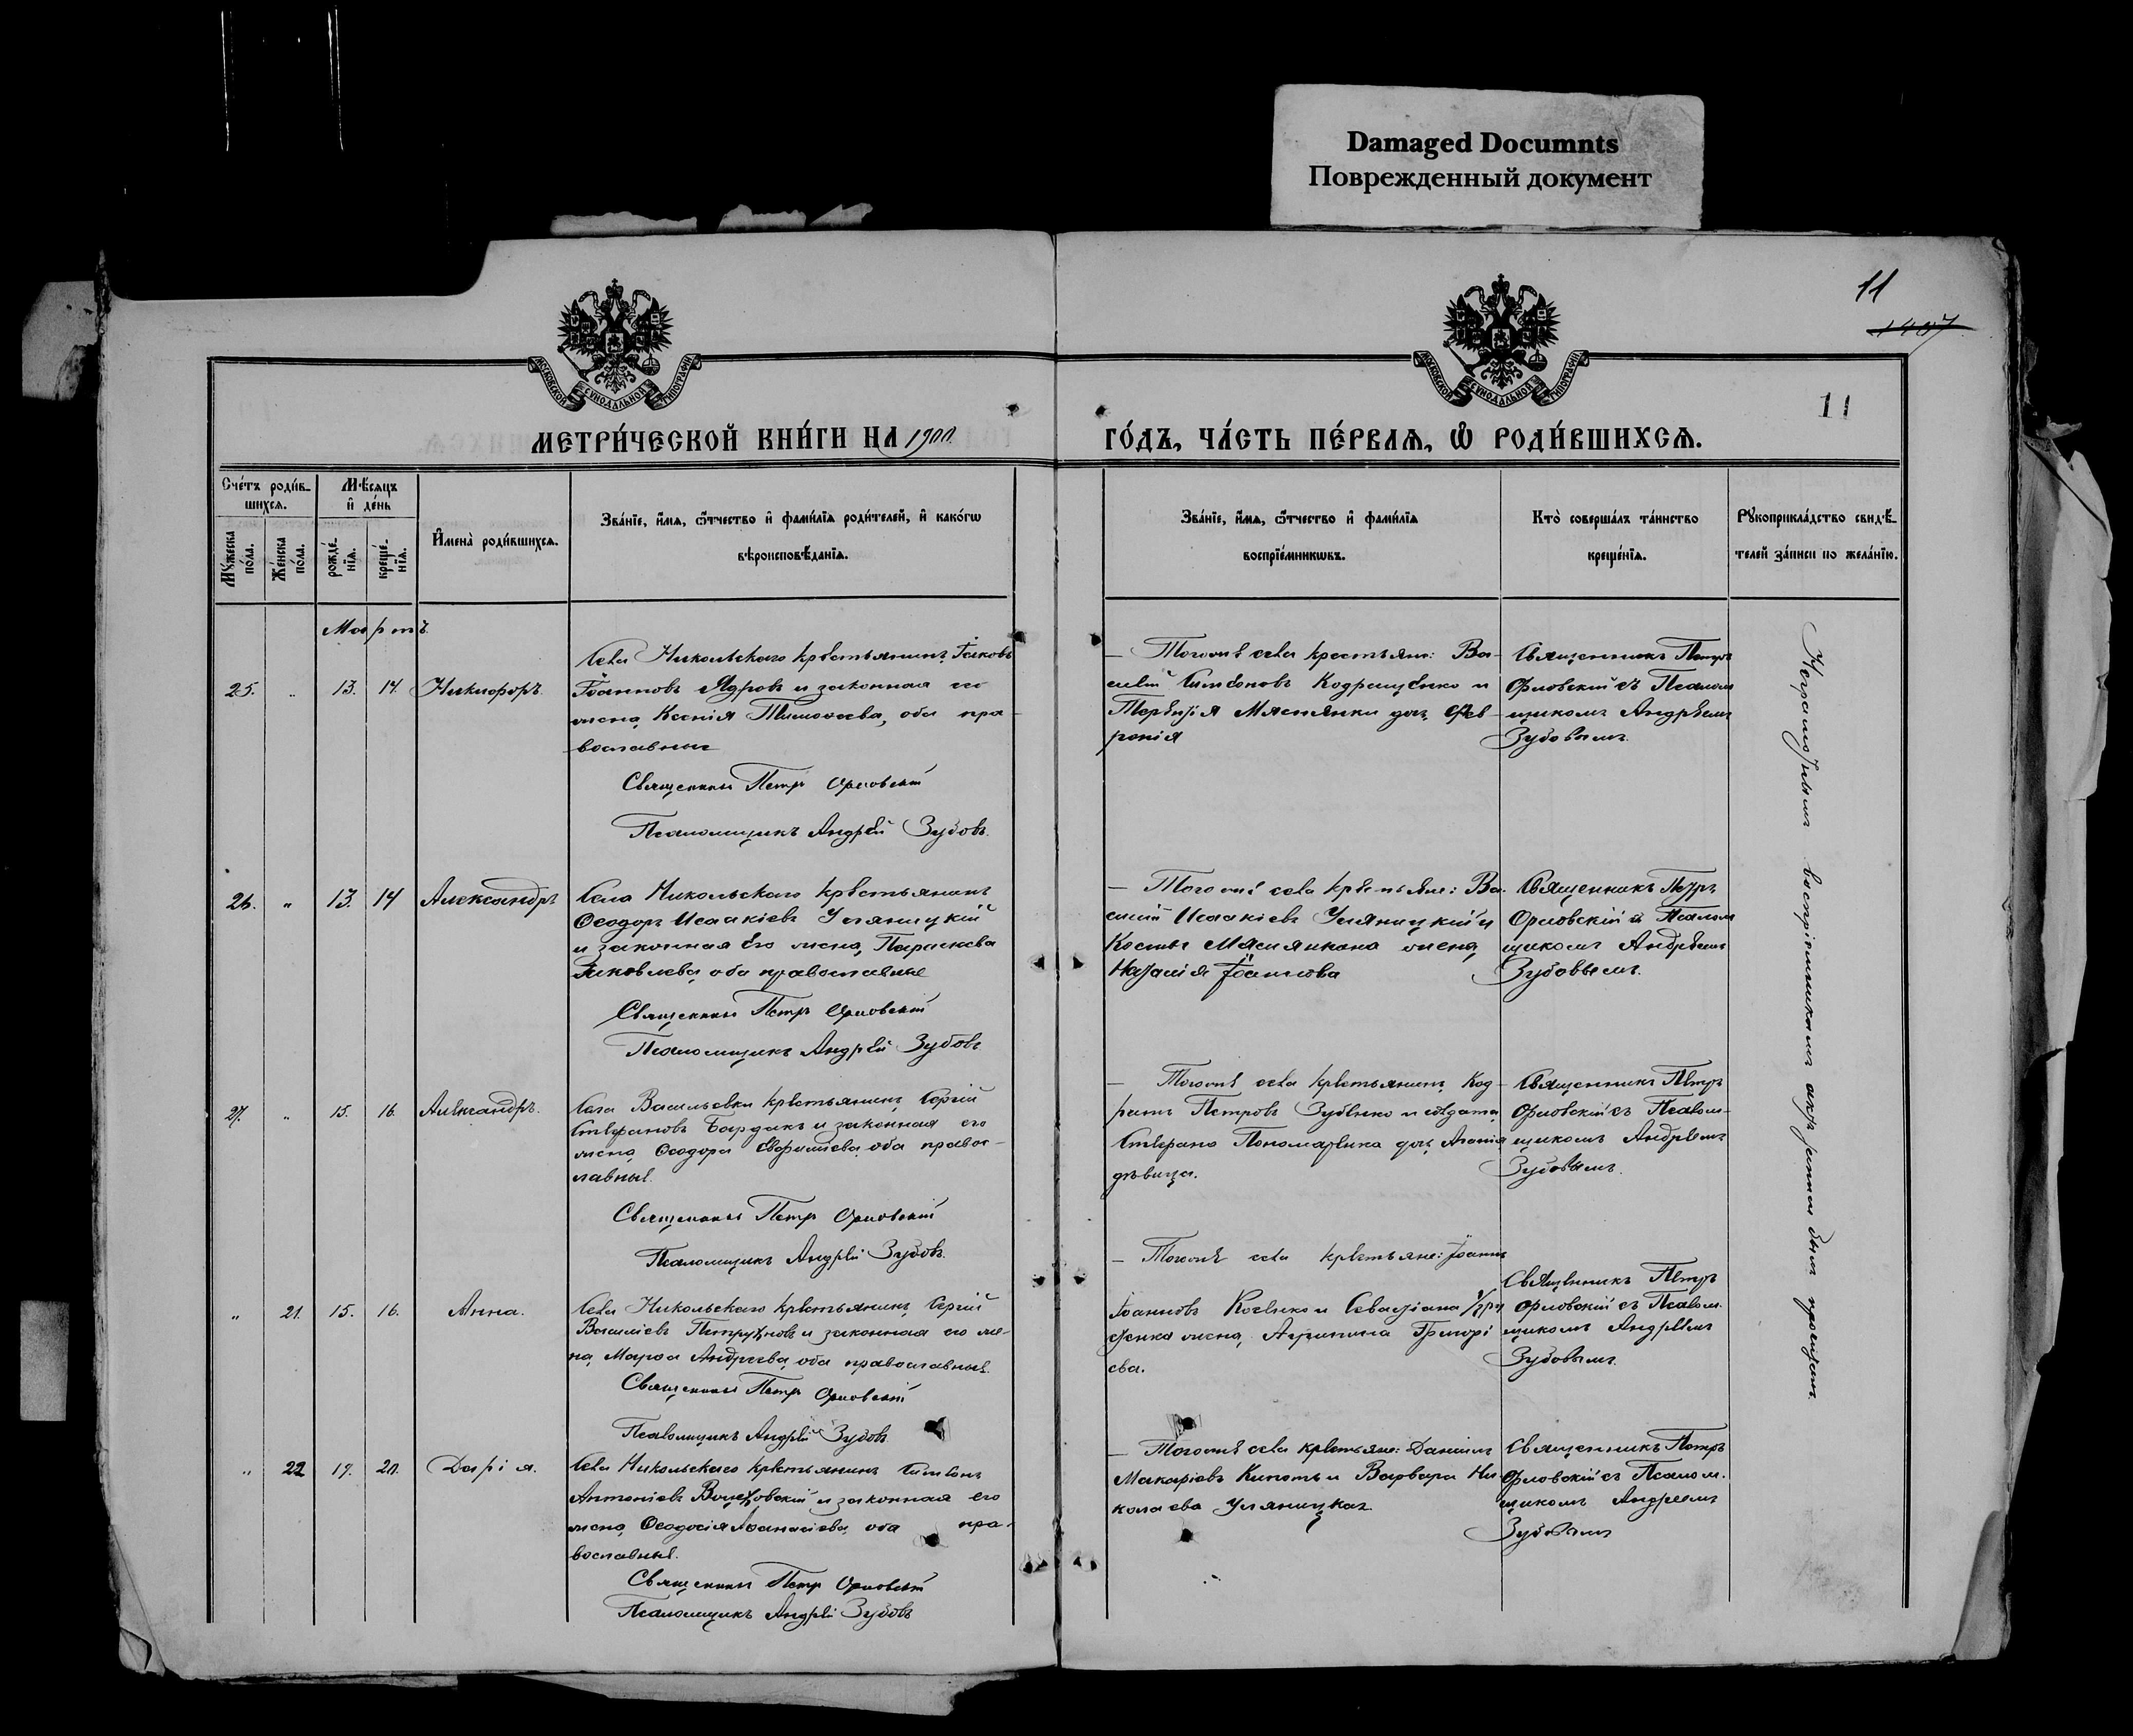 Damaged Documnts
Поврежденный документ
11
1407
11
МОСКОВСКОЙ СУНОДАЛЬНОЙ ТИПОГРАФІИ
МОСКОВСКОЙ СУНОДАЛЬНОЙ ТИПОГРАФІИ
МЕТРИ́ЧЕСКОЙ КНИ́ГИ НА 1900
ГО́ДЪ, ЧА́СТЬ ПЕ́РВАѦ, Ѡ РОДИ́ВШИХСѦ.
Сче́тъ роди́в-
шихсѧ.
Мѣ́сѧцъ
и де́нь
Му́жеска по́ла.
Же́нска по́ла.
рожде́-
нїѧ.
креще́-
нїѧ.
Имена̀ роди́вшихсѧ.
Зва́нїе, и́мѧ, ѻ҆́тчество и фами́лїѧ роди́телей, и како́гѡ
вѣроисповѣ́данїѧ.
Зва́нїе, и́мѧ, ѻ҆́тчество и фами́лїѧ
воспрїе́мникѡвъ.
Кто̀ соверша́лъ та́инство
креще́нїѧ.
Рꙋкоприкла́дство свидѣ́-
телей за́писи по жела́нїю.
Мартъ
25. " 13. 14. Никифоръ.
Села Никольскаго крестьянинъ Іаковъ
Іоанновъ Ядровъ и законная его
жена Ксенія Тимофеева, оба пра-
вославные
Священникъ Петръ Орловскій
Псаломщикъ Андрей Зубовъ.
— Тогоже села крестьяне: Ва-
силій Симеоновъ Кодращенко и
Терентія Мяснянки дочь Фев-
ронія
Священникъ Петръ
Орловскій съ Псалом
щикомъ Андреемъ
Зубовымъ.
26. " 13. 14 Александръ
Села Никольскаго крестьянинъ
Ѳеодоръ Исаакіевъ Уляницкій
и законная его жена Параскева
Яковлева, оба православные
Священникъ Петръ Орловскій
Псаломщикъ Андрей Зубовъ
— Тогоже села крестьяне: Ва-
силій Исаакіевъ Уляницкій и
Косьмы Мяснянкина жена
Наталія Іоаннова
Священникъ Петръ
Орловскій съ Псалом
щикомъ Андреемъ
Зубовымъ.
27. " 15. 16. Александръ.
Села Васильевки крестьянинъ Сергій
Стефановъ Бардакъ и законная его
жена Ѳеодора Евфимиева, оба правос-
лавные.
Священникъ Петръ Орловскій
Псаломщикъ Андрей Зубовъ.
— Тогоже села крестьянинъ Код-
ратъ Петровъ Зубенко и солдата
Стефана Пономаренка дочь Агаѳія
дѣвица.
Священникъ Петръ
Орловскій съ Псалом-
щикомъ Андреемъ
Зубовымъ.
" 21. 15. 16. Анна.
Села Никольскаго крестьянинъ Сергій
Василіевъ Петруновъ и законная его же-
на Марѳа Андреева, оба православные.
Священникъ Петръ Орловскій
Псаломщикъ Андрей Зубовъ
— Тогоже села крестьяне: Іоаннъ
Іоанновъ Коченко и Севастіана
жена, Агрипина Григорі
ева.
Священникъ Петръ
Орловскій съ Псалом.
щикомъ Андреемъ
Зубовымъ.
" 22 19. 20. Дарія.
Села Никольскаго крестьянинъ Симеонъ
Антоніевъ Войцеховскій и законная его
жена Ѳеодосія Аѳанасіева, оба пра-
вославные.
Священникъ Петръ Орловскій
Псаломщикъ Андрей Зубовъ
— Тогоже села крестьяне: Даніилъ
Макаріевъ Кипоть и Варвара Ни-
колаева Уляницкая
Священникъ Петръ
Орловскій съ Псалом-
щикомъ Андреемъ
Зубовымъ
Неграмотнымъ воспріемникамъ актъ записи былъ прочитанъ.